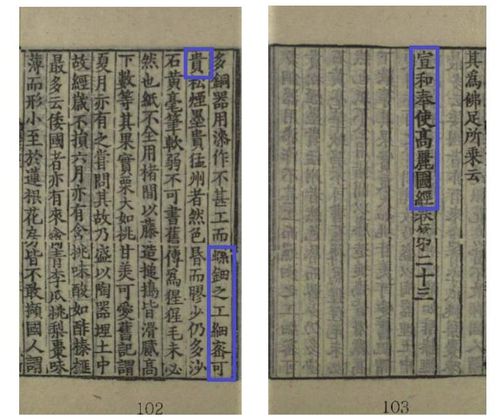 多銅器用漆作不甚工而螺鈿之工細密可
貴松煙墨貴猛州者然色昏而膠少仍多沙
石黃毫筆軟弱不可書舊傳為猩猩毛未必
然也紙不全用楮間以藤造搥擣皆滑膩高
下數等其果實栗大如桃甘美可愛舊記謂
夏月亦有之嘗問其故乃盛以陶器埋土中
故經歲不損六月亦有含桃味酸如酢榛榧
最多云倭國者亦有來禽青李瓜桃梨棗味
薄而形小至於蓮根花房皆不敢擷國人謂
102
其為佛足所乘云
宣和奉使高麗圖經卷第二十三
103